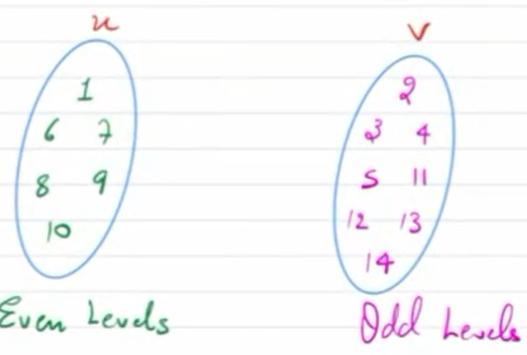 u V
1 2
6 7 3 4
8 9 5 11
10 12 13
14
Even Levels Odd Levels